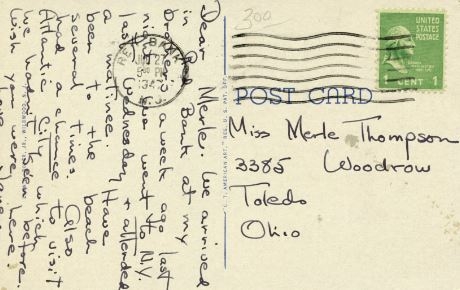 Dear Merle: We arrived
in Red Bank at my
a week ago last
we went to N.Y.
last Wednesday & attended
a matinee. Have
been to the beach
several times. Also
had a chance to visit
Atlantic City which
we hadn't seen before.
Wish you were here.
300
RED BANK
N.J.
UNITED
STATES
POSTAGE
1 CENT 1
POST CARD
Miss Merle Thompson
3385 Woodrow
Toledo
Ohio